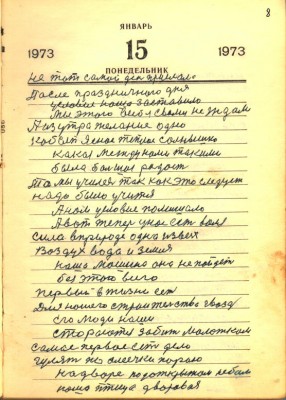 8
ЯНВАРЬ
1973 15 1973
ПОНЕДЕЛЬНИК
не тот самой ден пришол
После праздничного дня
условие нашо заставило
мы этого вся своми не ждали
А из утра желание одно
чобы ясное теплое солнышко
какая между нами такими
была большая радост
Та мы училися так как это следует
надо было учится
А нам условие помешало
А вот тепер у нас ест воля
сила в природе одна извея
Воздух вода и земля
наша машина она не пойдет
без этого всего
первый в жизни ест
Для нашего строителства гвозд
его люди наши
стораются забит молотком
самое первое ест дело
гулят по слеечки порою
на дворе под открытом небом
наша птица дворовая